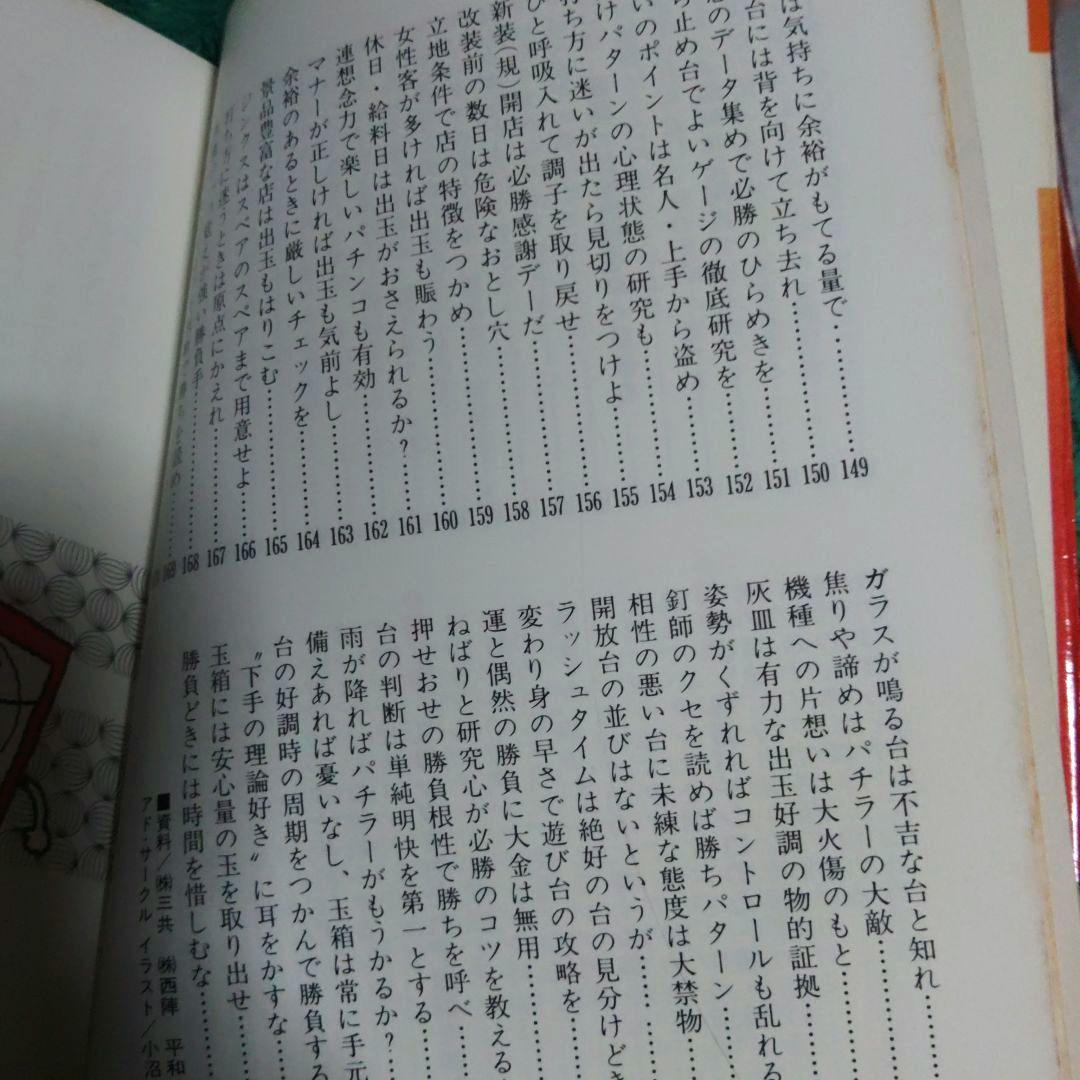 は気持ちに余裕がもてる量で……………149
台には背を向けて立ち去れ……………150
のデータ集めで必勝のひらめきを……………151
止め台でよいゲージの徹底研究を……………152
いのポイントは名人・上手から盗め……………153
けパターンの心理状態の研究も……………154
打ち方に迷いが出たら見切りをつけよ……………155
びと呼吸入れて調子を取り戻せ……………156
新装(規)開店は必勝感謝デーだ……………157
改装前の数日は危険なおとし穴……………158
立地条件で店の特徴をつかめ……………159
女性客が多ければ出玉も賑わう……………160
休日・給料日は出玉がおさえられるか?……………161
連想念力で楽しいパチンコも有効……………162
マナーが正しければ出玉も気前よし……………163
余裕のあるときに厳しいチェックを……………164
景品豊富な店は出玉もはりこむ……………165
ジンクスはスペアのスペアまで用意せよ……………166
打ち方に迷うときは原点にかえれ……………167
強い勝負手……………168
……………169
ガラスが鳴る台は不吉な台と知れ……………
焦りや諦めはパチラーの大敵……………
機種への片想いは大火傷のもと……………
灰皿は有力な出玉好調の物的証拠……………
姿勢がくずれればコントロールも乱れる
釘師のクセを読めば勝ちパターン……………
相性の悪い台に未練な態度は大禁物
開放台の並びはないというが……………
ラッシュタイムは絶好の台の見分けどき
変わり身の早さで遊び台の攻略を……………
運と偶然の勝負に大金は無用……………
ねばりと研究心が必勝のコツを教える
押せおせの勝負根性で勝ちを呼べ……………
台の判断は単純明快を第一とする……………
雨が降ればパチラーがもうかるか?……………
備えあれば憂いなし、玉箱は常に手元
台の好調時の周期をつかんで勝負する
〝下手の理論好き〟に耳をかすな……………
玉箱には安心量の玉を取り出せ……………
勝負どきには時間を惜しむな……………
■資料/㈱三共 ㈱西陣 平和
アド・サークル イラスト/小沼